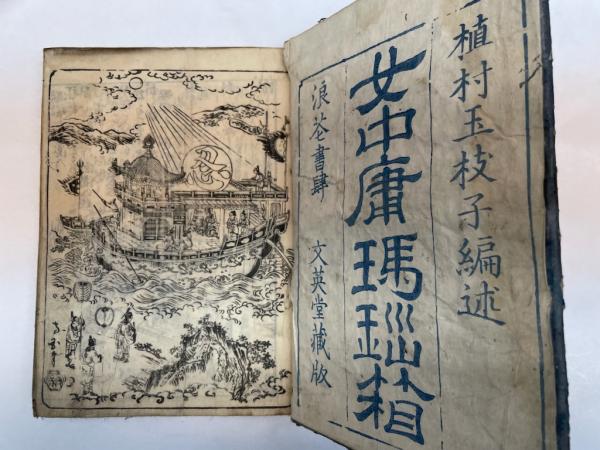 植村玉枝子編述
女中庸瑪瑙箱
浪花書肆 文英堂藏版
忍